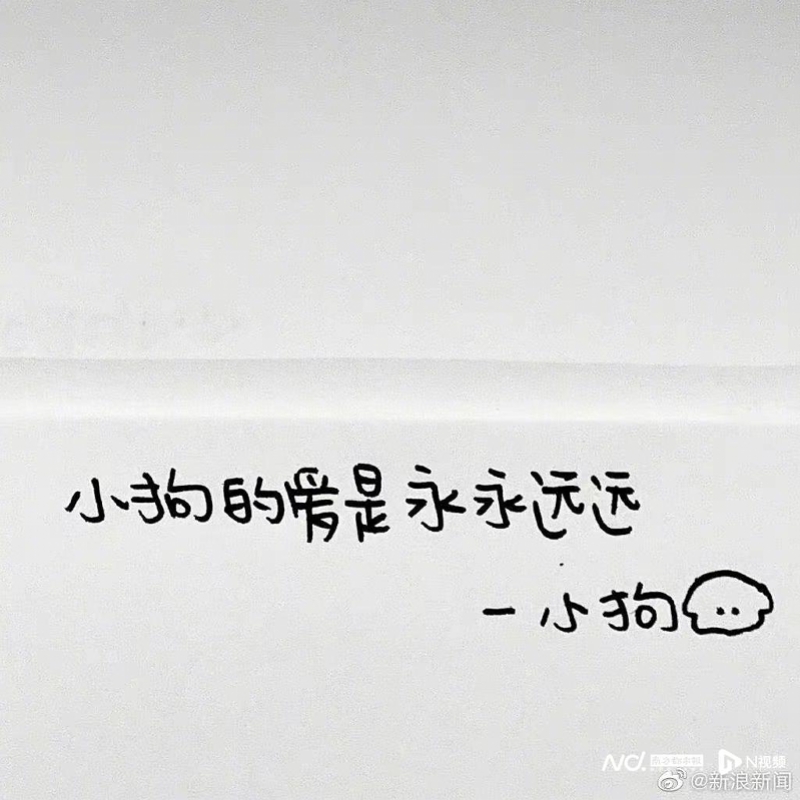 小狗的爱是永永远远
-小狗
N视频
@新浪新闻